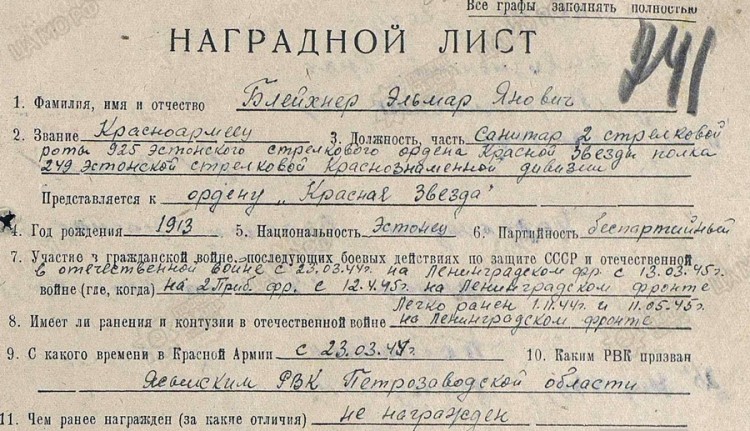 Все графы заполнять полностью
НАГРАДНОЙ ЛИСТ
241
1. Фамилия, имя и отчество Блейхнер Эльмар Янович
2. Звание Красноармеец 3. Должность, часть Санитар 2 стрелковой
роты 925 Эстонского стрелкового ордена Красной Звезды полка
249 Эстонской стрелковой Краснознаменной дивизии
Представляется к ордену „Красная Звезда"
4. Год рождения 1913 5. Национальность Эстонец 6. Партийность беспартийный
7. Участие в гражданской войне, последующих боевых действиях по защите СССР и отечественной
в отечественной войне с 23.03.44г. на Ленинградском фр. с 13.03.45г.
войне (где, когда) на 2 Приб. фр. с 12.4.45г. на Ленинградском фронте
Легко ранен 1.11.44г. и 11.05.45г.
8. Имеет ли ранения и контузии в отечественной войне на Ленинградском фронте
9. С какого времени в Красной Армии с 23.03.44г. 10. Каким РВК призван
РВК Петрозаводской области
11. Чем ранее награжден (за какие отличия) не награжден